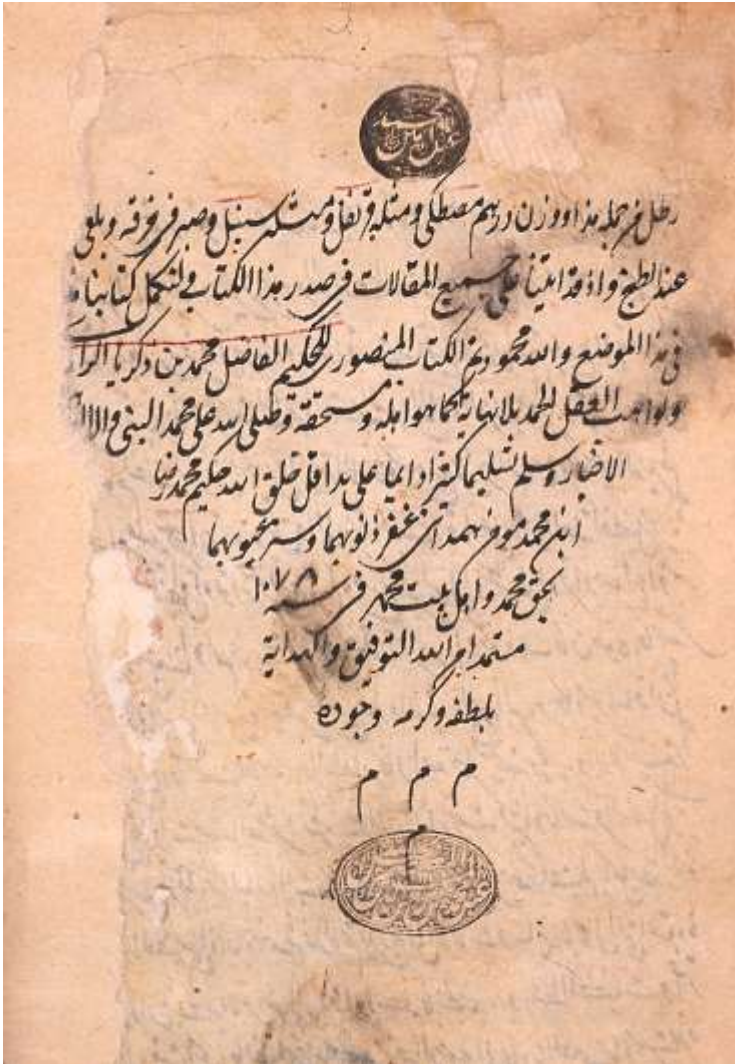 رطل من جمله هذا ووزن درهم مصطکی ومثله قرنفل ومثله سنبل وصبر فی خرقه ویلقی
عند الطبخ واذ قد اتینا علی جمیع المقالات فی صدر هذا الکتاب فلنکمل کتابنا
فی هذا الموضع والله محمود تم الکتاب المنصوری للحکیم الفاضل محمد بن زکریا الرا
ولواهب العقل الحمد بلانهایة کما هو اهله ومستحقه وصلی الله علی محمد النبی واله
الاخیار وسلم تسلیما کثیرا دایما علی ید اقل خلق الله حکیم محمد رضا
ابن محمد مومن همدانی غفر ذنوبهما وستر عیوبهما
بحق محمد واهل بیت محمد فی سنه ۱۰۷۸
مستمدا من الله التوفیق والهدایة
بلطفه وکرمه وجوده
م م م
م